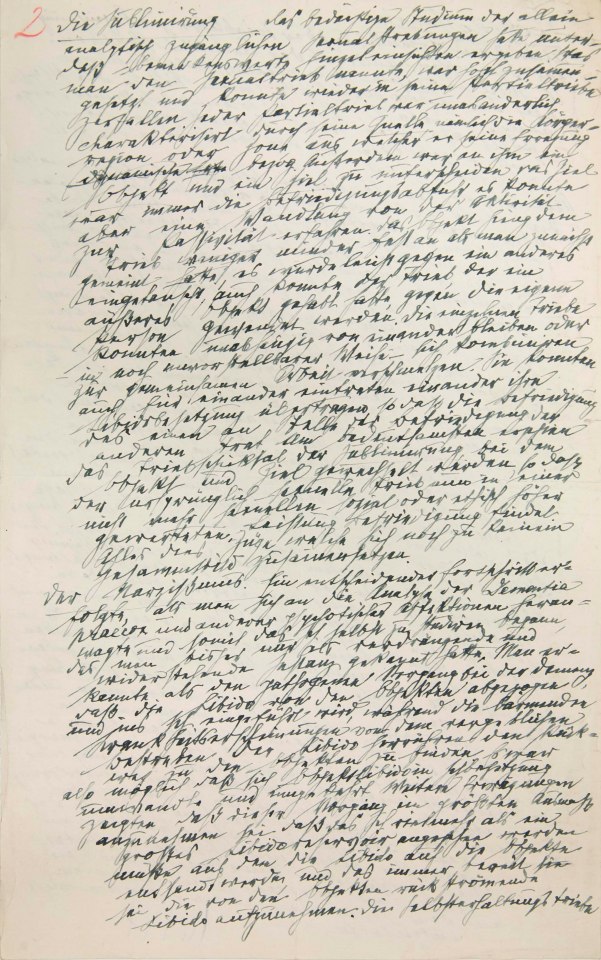 2
die Sublimirung das bedächtige Studium der allein
analytisch zugänglichen Sexualstrebungen
daß bemerkenswerte Einzeleinsichten ergeben. Was
man den Sexualtrieb nannte, war hoch zusammen-
gesetzt und konnte wieder in seine Partialtriebe
zerfallen. Jeder Partialtrieb war unabänderlich
charakterisirt durch seine Quelle nämlich die Körper-
region oder Zone aus welcher er seine Erregung
bezog. Außerdem war an ihm ein
Objekt und ein Ziel zu unterscheiden. Das Ziel
war immer die Befriedigungsabfuhr es konnte
aber eine Wandlung von der Aktivität
zur Passivität erfahren. Das Objekt hieng dem
Trieb weniger fest an als man zunächst
gemeint hatte, es wurde leicht gegen ein anderes
eingetauscht, auch konnte der Trieb der ein
äußeres Objekt gehabt hatte, gegen die eigene
Person gewendet werden. die einzelnen Triebe
konnten unabhängig von einander bleiben oder
in noch unvorstellbarer Weise sich kombiniren
zur gemeinsamen Arbeit verschmelzen. Sie konnten
auch für einander eintreten einander ihre
Libidobesetzung übertragen, so daß die Befriedigung
des einen an Stelle der Befriedigung der
anderen trat. Am bedeutsamsten erschien
das Triebschicksal der Sublimirung bei dem
Objekt und Ziel gewechselt werden so daß
der ursprünglich sexuelle Trieb nun in einer
nicht mehr sexuellen sozial oder ethisch höher
gewerteten Leistung Befriedigung findet.
Alles dies Züge welche sich noch zu keinem
Gesammtbild zusammensetzen
der Narzißmus. Ein entscheidender Fortschritt er-
folgte, als man sich an die Analyse der Dementia
praecox und anderer psychotischer Affektionen heran-
wagte und somit das Ich selbst zu studiren begann
das man bisher nur als verdrängende und
widerstehende Instanz gekannt hatte. Man er-
kannte als den pathogenen Vorgang bei der Demenz
daß die Libido von den Objekten abgezogen
und ins Ich eingeführt wird, während die lärmenden
Krankheitserscheinungen von dem vergeblichen
Bestreben der Libido herrühren den Rück-
weg zu den Objekten zu finden. Es war
also möglich daß sich Objektlibido in Ichbesetzung
umwandte und umgekehrt. Weitere Erwägungen
zeigten daß dieser Vorgang im größten Ausmaß
anzunehmen sei daß das Ich vielmehr als ein
großes Libidoreservoir angesehen werden
mußte aus dem die Libido auf die Objekte
entsandt werde, und das immer bereit sie
sei die von den Objekten rückströmende
Libido aufzunehmen. Die Selbsterhaltungstriebe